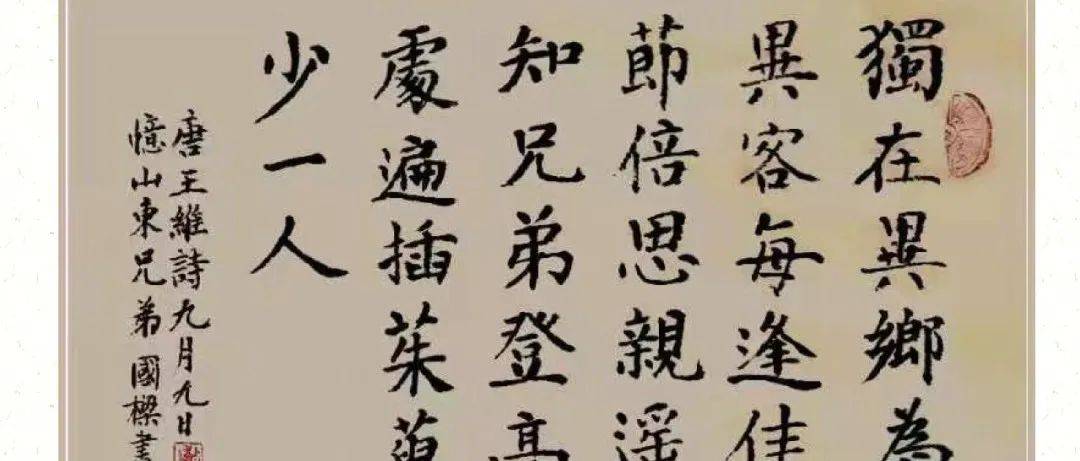 獨在異鄉為
異客每逢佳
節倍思親遥
知兄弟登高
處遍插茱萸
少一人
唐王維詩九月九日
憶山東兄弟 國樑書